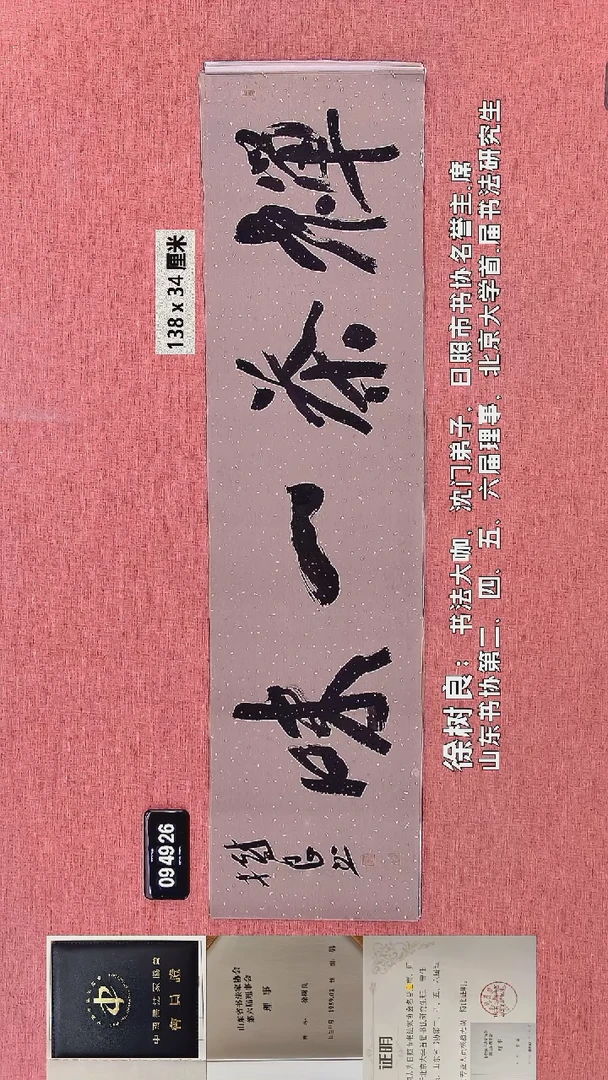 138 x 34 厘米
09 49 26
禪茶一味
樹良书
徐树良：书法大咖，沈门弟子，日照市书协名誉主席
山东书协第二、四、五、六届理事，北京大学首届书法研究生
中國書法家協會
會員證
山东省书法家协会
第六届理事会
理 事
证明